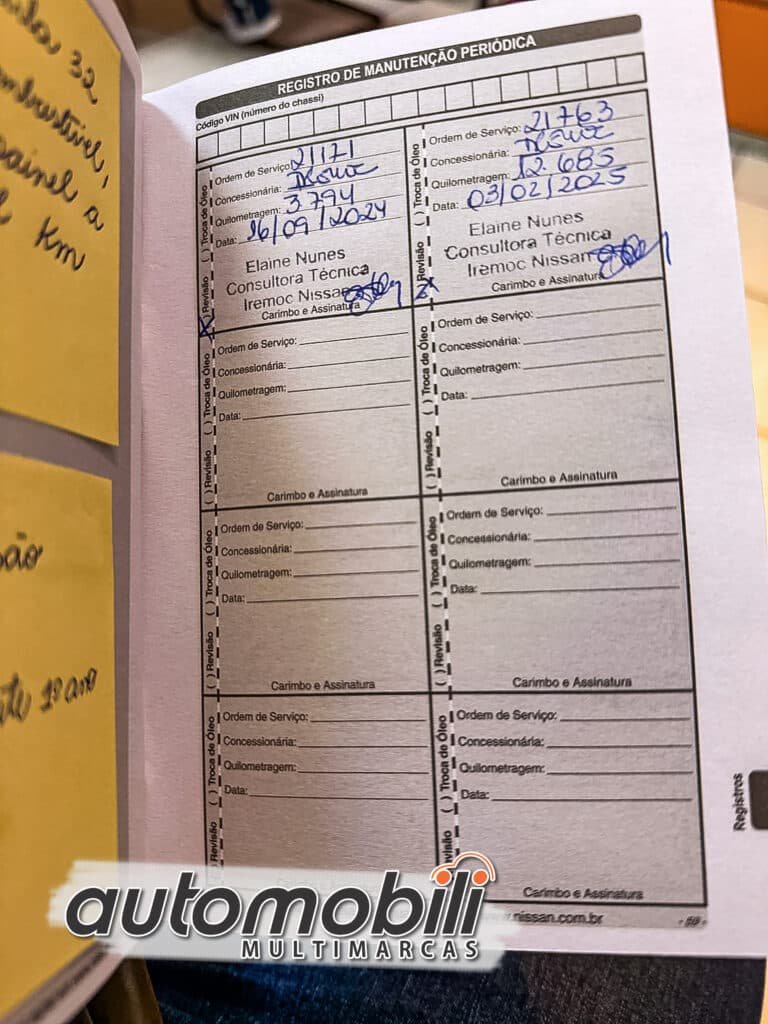 uila 32
ombustível,
painel a
Km
ão
te 1º ano
REGISTRO DE MANUTENÇÃO PERIÓDICA
Código VIN (número do chassi)
( ) Revisão ( ) Troca de Óleo
Ordem de Serviço: 21171
Concessionária:
Quilometragem: 3794
Data: 16/09/2024
Elaine Nunes
Consultora Técnica
Iremoc Nissan
Carimbo e Assinatura
( ) Revisão ( ) Troca de Óleo
Ordem de Serviço: 21763
Concessionária:
Quilometragem: 12.685
Data: 03/02/2025
Elaine Nunes
Consultora Técnica
Iremoc Nissan
Carimbo e Assinatura
( ) Revisão ( ) Troca de Óleo
Ordem de Serviço:
Concessionária:
Quilometragem:
Data:
Carimbo e Assinatura
( ) Revisão ( ) Troca de Óleo
Ordem de Serviço:
Concessionária:
Quilometragem:
Data:
Carimbo e Assinatura
( ) Revisão ( ) Troca de Óleo
Ordem de Serviço:
Concessionária:
Quilometragem:
Data:
Carimbo e Assinatura
( ) Revisão ( ) Troca de Óleo
Ordem de Serviço:
Concessionária:
Quilometragem:
Data:
Carimbo e Assinatura
) Revisão ( ) Troca de Óleo
Ordem de Serviço:
Concessionária:
Quilometragem:
Data:
Revisão ( ) Troca de Óleo
Ordem de Serviço:
Concessionária:
Quilometragem:
Data:
Carimbo e Assinatura
Registros
.nissan.com.br
automobili
MULTIMARCAS